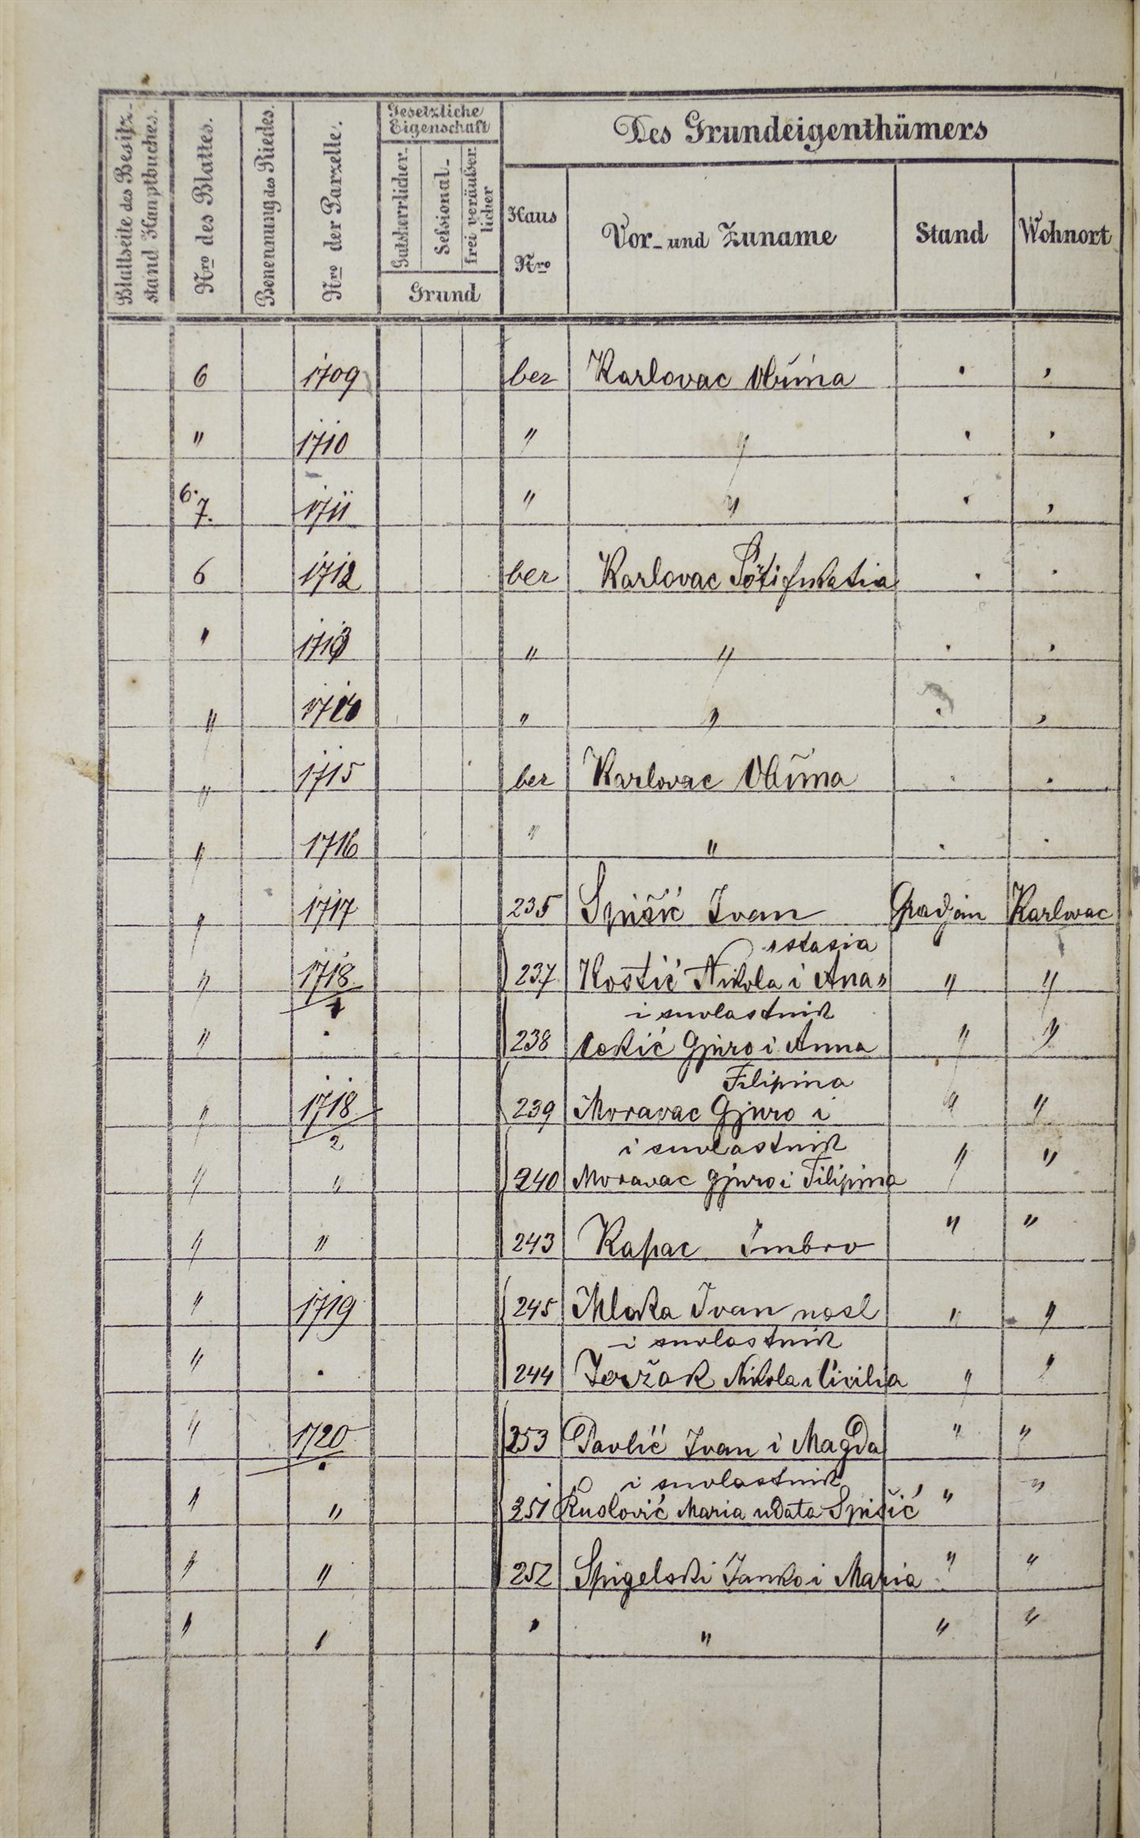 Blattseite des Besitz-
stand Hauptbuches.
Nro des Blattes.
Benennung des Riedes.
Nro der Parzelle.
Gesetzliche
Eigenschaft
Gutsherrlicher-
Sessional-
frei veräußer
licher
Grund
Des Grundeigenthümers
Haus
Nro
Vor- und Zuname
Stand
Wohnort
6 1709 ber Karlovac Občina
" 1710 " "
6.
7. 1711 " "
6 1712 ber Karlovac
" 1713 " "
" " "
" 1715 ber Karlovac Občina
" 1716 " "
" 1717 235 Spišić Ivan Gradjan Karlovac
stasia
" 1718 237 Kostić Nikola i Ana= " "
1
i suvlastnik
" 238 Cokić Gjuro i Anna " "
Filipina
" 1718 239 Moravac Gjuro i " "
2
i suvlastnik
" " 240 Moravac Gjuro i Filipina " "
" " 243 Kapac Imbro " "
" 1719 245 Ivan nasl " "
i suvlastnik
" 244 Jeržak Nikola i Cicilia " "
" 1720 253 Pavlić Ivan i Magda " "
i suvlastnik
" " 251 Maria udata Spišić " "
" " 252 Spigelski Janko i Maria " "
" " " " " "